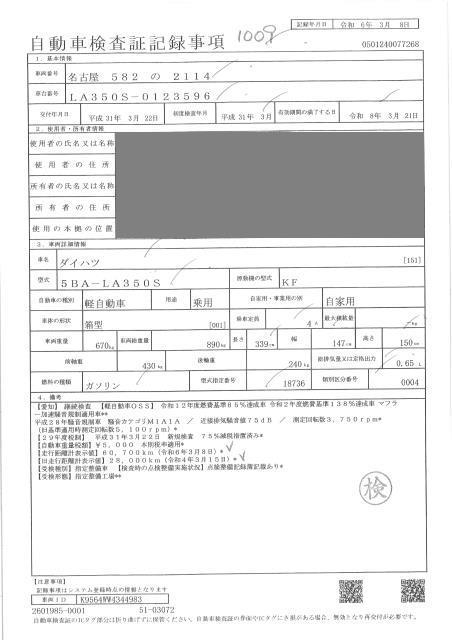 記録年月日 令和 6年 3月 8日
自動車検査証記録事項 1009 0501240077268
1．基本情報
車両番号 名古屋 582 の 2114
車台番号 LA350S-0123596
交付年月日 平成 31年 3月 22日 初度検査年月 平成 31年 3月 有効期間の満了する日 令和 8年 3月 21日
2．使用者・所有者情報
使用者の氏名又は名称
使用者の住所
所有者の氏名又は名称
所有者の住所
使用の本拠の位置
3．車両詳細情報
車名 ダイハツ [151]
型式 5BA-LA350S 原動機の型式 KF
自動車の種別 軽自動車 用途 乗用 自家用・事業用の別 自家用
車体の形状 箱型 [001] 乗車定員 4人 最大積載量 kg
車両重量 670kg 車両総重量 890kg 長さ 339cm 幅 147cm 高さ 150cm
前軸重 430kg 後軸重 240kg 総排気量又は定格出力 0.65 L
燃料の種類 ガソリン 型式指定番号 18736 類別区分番号 0004
4．備考
【愛知】 継続検査 【軽自動車OSS】 令和12年度燃費基準85%達成車 令和2年度燃費基準138%達成車 マフラ
ー加速騒音規制適用車**
平成28年騒音規制車 騒音カテゴリM1A1A ／ 近接排気騒音値75dB ／ 測定回転数3,750rpm*
(旧基準適用時測定回転数5,100rpm)*
【29年度税制】 平成31年3月22日 新規検査 75%減税措置済み*
【自動車重量税額】 ¥5,000 本則税率適用*
【走行距離計表示値】 60,700km (令和6年3月8日)*
【旧走行距離計表示値】 28,000km (令和4年3月15日)*
【受検種別】 指定整備車 【検査時の点検整備実施状況】 点検整備記録簿記載あり*
【受検形態】 指定整備工場**
検
【注意事項】
記録事項はシステム登録時点の情報となります
車両ID K9564WW4344983
2601985-0001 51-03072
自動車検査証のICタグ部分は折り曲げずに保管ください。自動車検査証の券面やICタグにき損がある場合、無効となり再交付が必要です。